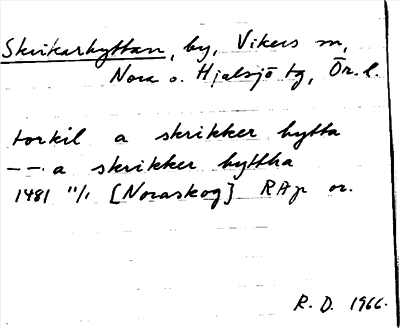 Skrikarhyttan, by, Vikers sn,
Nora o. Hjulsjö tg, Ör. l.
torkil a skrikker hytta
-- - a skrikker hyttha
1481 11/1 [Noraskog] RAp or.
R. D. 1966.